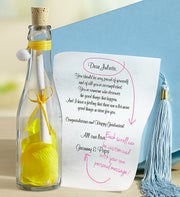 Dear Juliette,
You should be very proud of yourself
and of all you've accomplished.
You're someone who deserves
the good things that happen,
And I have a feeling that there are a lot more
good things ahead for you.
Congratulations and Happy Graduation!
All our love,
Grammy & Papa
Each scroll can
be customized
with your own
personal message!